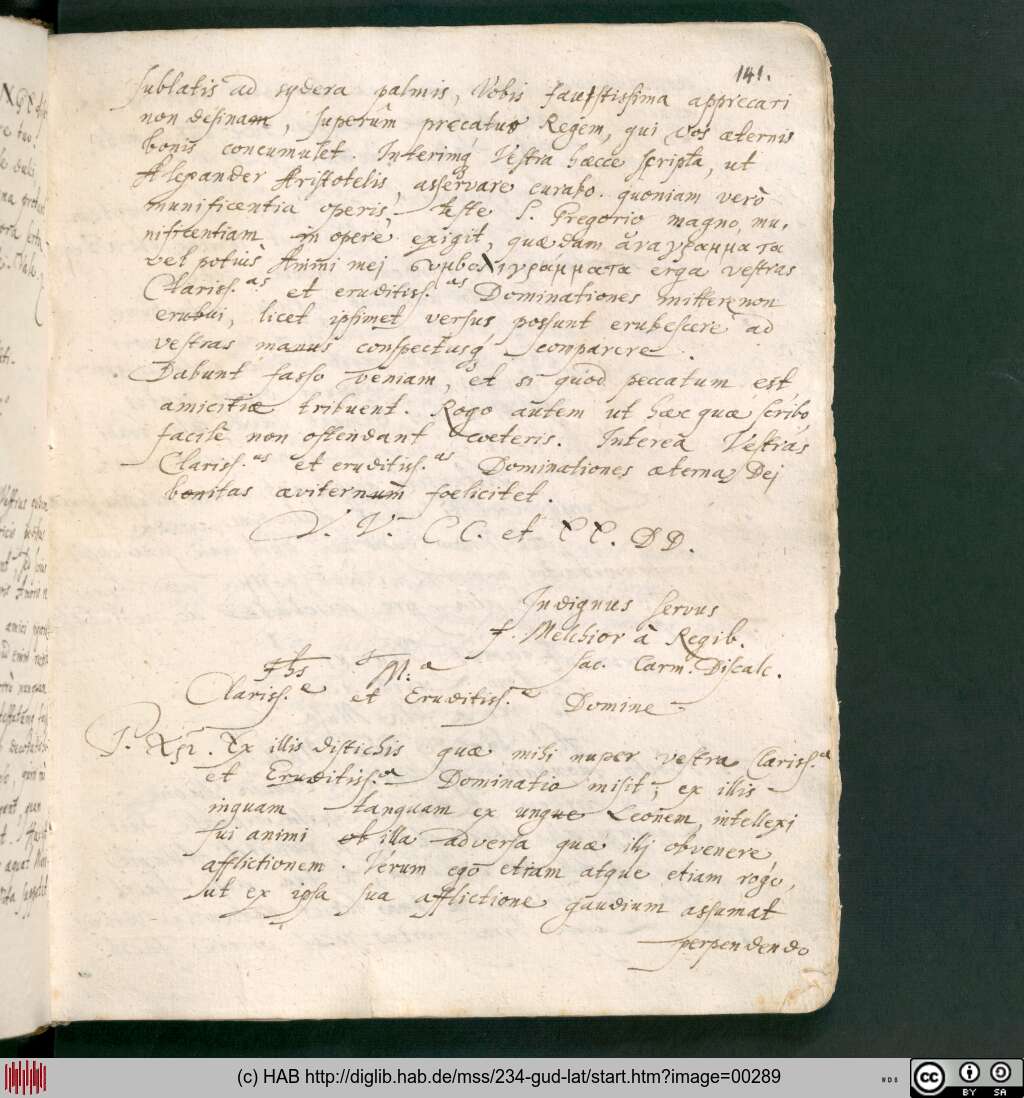 141.
sublatis ad sydera palmis, Vobis faustissima apprecari
non desinam, superûm præcatus Regem, qui vos æternis
bonis concumulet. Interimq3 Vestra hæcce scripta, ut
Alexander Aristotelis, asservare curabo. quoniam verò
munificentia operis, teste S. Gregorio magno, mu,
nificentiam in opere exigit, quædam ἀναγραμματα
vel potiùs Animi mej συμβολιγράμματα erga vestras
Clariss.as et eruditiss.as Dominationes mittere non
erubui, licet ipsimet versus possunt erubescere ad
vestras manus conspectusq3 comparere.
Dabunt fasso veniam, et si quod peccatum est
amicitiæ tribuent. Rogo autem ut hæc quæ scribo
facilè non ostendant cæteris. Intereà Vestras
Clariss.as et eruditiss.as Dominationes æterna Dej
bonitas æviternùm foelicitet.
V. V. CC. et EE. DD.
Indignus servus
f. Melchior à Regib.
sac. Carm. Discalc.
Jhs M.a
Clariss.e et Eruditiss.e Domine
P. Xpi. Ex illis distichis quæ mihi nuper vestra Clariss.a
et Eruditiss.a Dominatio misit, ex illis
inquam tanquam ex ungue Leonem, intellexi
sui animi ob illa adversa quæ illj obvenere,
afflictionem. Verum ego etiam atque etiam rogo,
ut ex ipsa sua afflictione gaudium assumat
perpendendo
(c) HAB http://diglib.hab.de/mss/234-gud-lat/start.htm?image=00289
cc BY SA